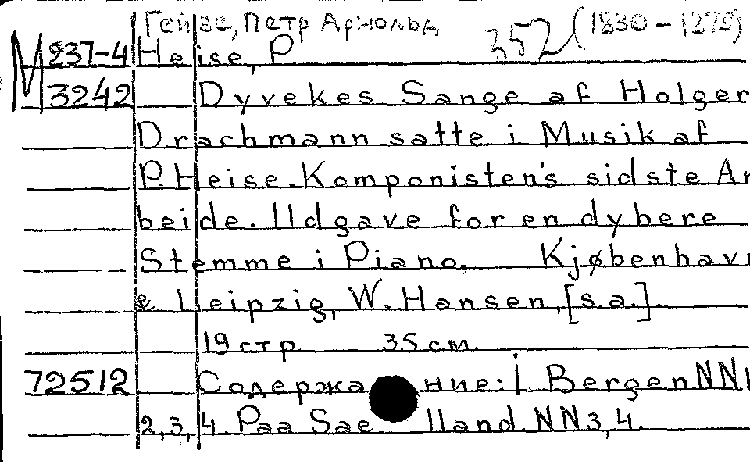 Гейзе, Петр Арнольд 352 (1830-1879)
М 237-4 Heise, P.
3242 Dyvekes Sange af Holger
Drachmann satte i Musik af
P. Heise. Komponisten's sidste Ar
beide. Udgave for en dybere
Stemme i Piano. Kjøbenhavn
& Leipzig, W. Hansen, [s.a.]
19 стр. 35 см.
72512 Содержание: I Bergen NN1
2,3,4. Paa Saelland NN3,4.